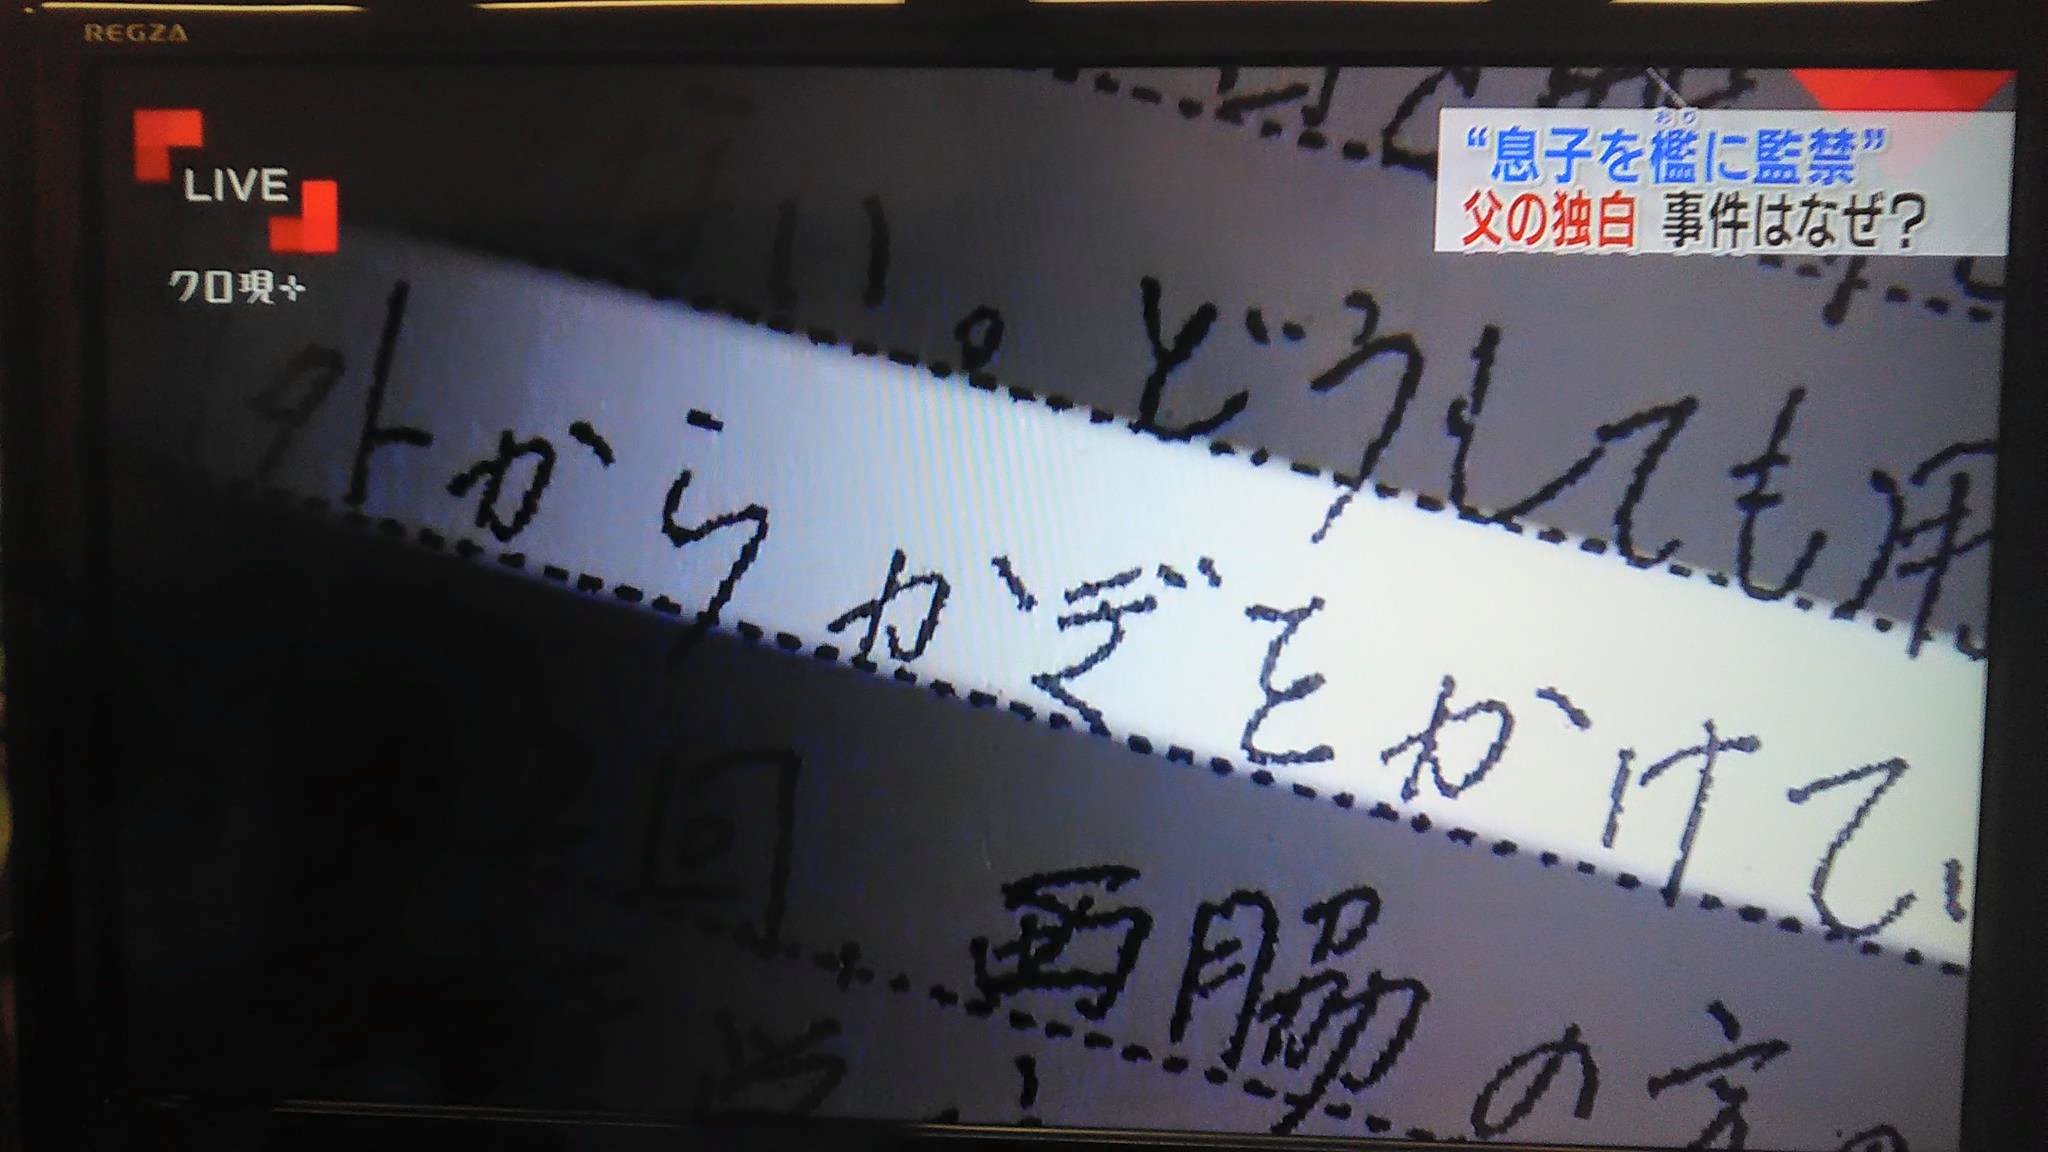 REGZA
LIVE
クロ現+
おり
“息子を檻に監禁”
父の独白 事件はなぜ?
。どうしても用
外からかぎをかけて、
西脇の方